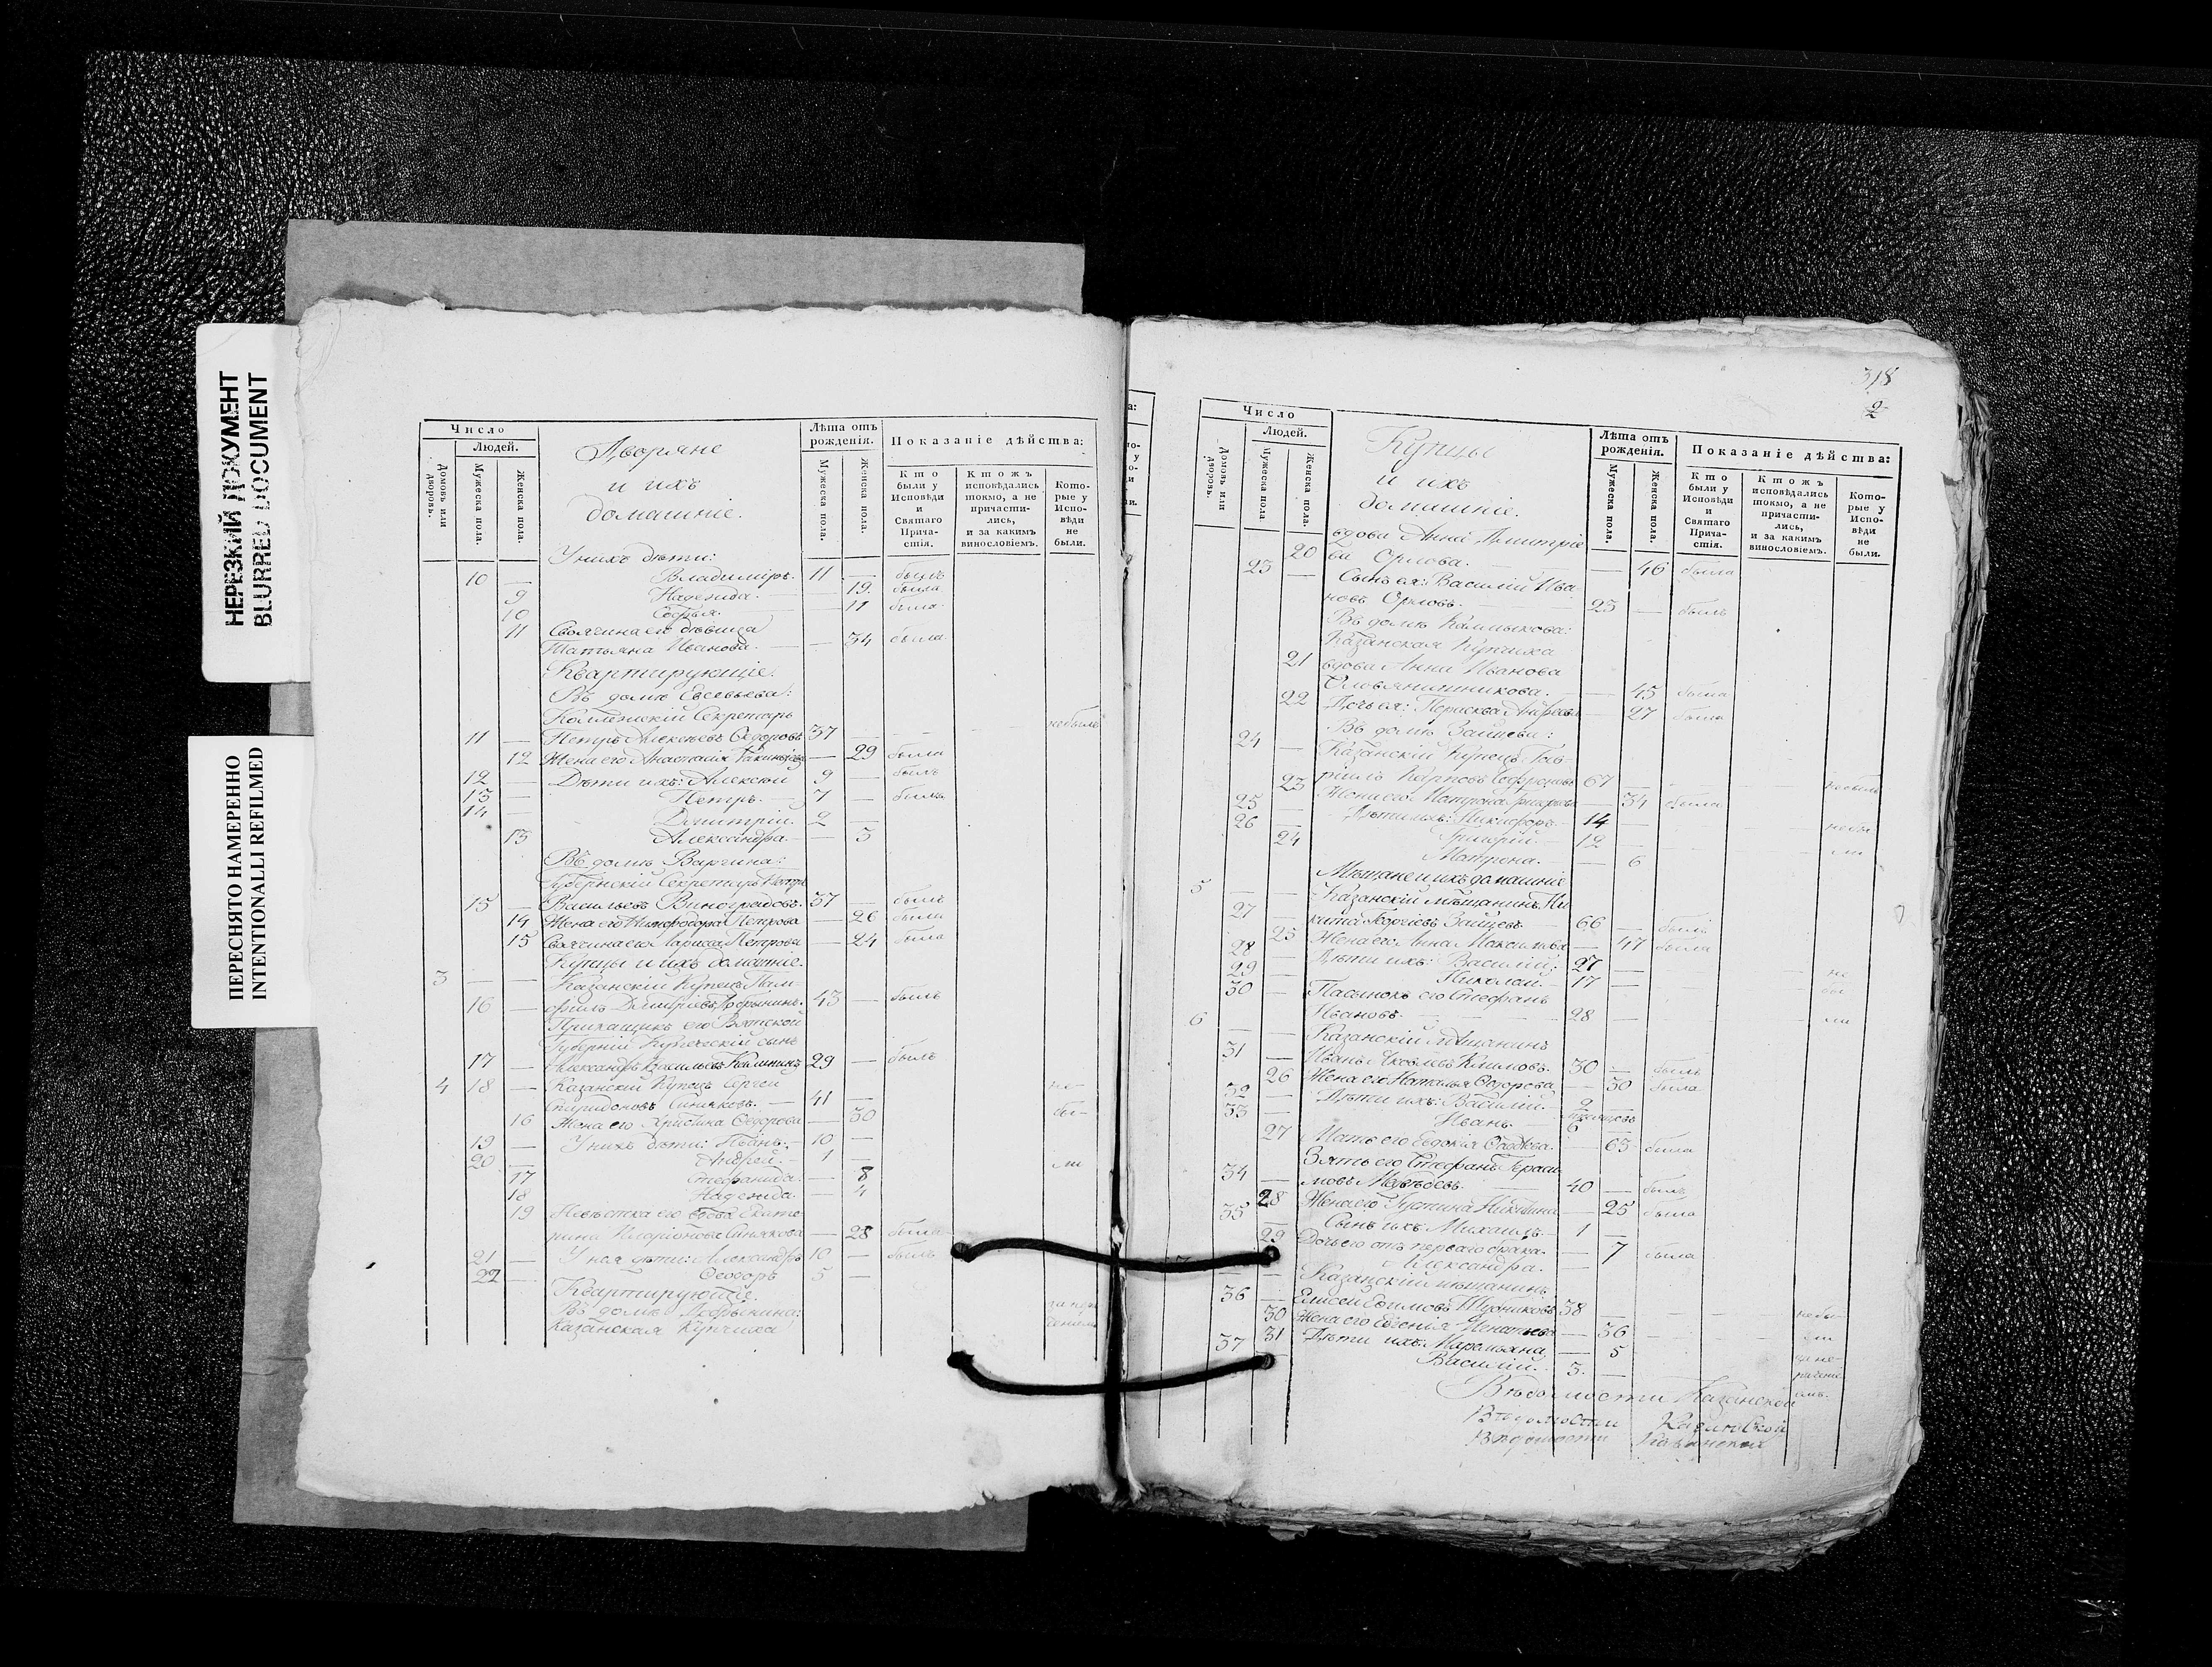 НЕРЕЗКИЙ ДОКУМЕНТ
BLURRED DOCUMENT
ПЕРЕСНЯТО НАМЕРЕННО
INTENTIONALLI REFILMED
Число
Людей.
Домовъ или дворовъ.
Мужеска пола.
Женска пола.
Дворяне
и ихъ
домашніе.
Лѣта отъ рожденія.
Мужеска пола.
Женска пола.
Показаніе дѣйства:
Кто были у Исповѣди и Святаго Причастія.
Ктожъ исповѣдались токмо, а не причастились, и за какимъ винословіемъ.
Которые у Исповѣди не были.
У нихъ дѣти:
10 — Владиміръ. 11 — былъ
9 Надежда. — 19. была
10 Софья. — 11 была
11 Своячина его дѣвица
Татьяна Иванова. — 34 была
Квартирующіе.
Въ домѣ Евсевьева:
Коллежскій Секретарь
11 — Петръ Алексѣевъ Ѳедоровъ 37 — небылъ
12 Жена его Анастасія — 29 была
12 — Дѣти ихъ: Алексѣй 9 — былъ
13 — Петръ. 7 — былъ
14 — Димитрій. 2 —
13 Александра. — 3
Въ домѣ Варгина:
Губернскій Секретарь Петръ
15 — Васильевъ Виноградовъ. 37 — былъ
14 Жена его Минодора Петрова — 26 была
15 Своячина его Лариса Петрова — 24 была
Купцы и ихъ домашніе.
3 — — Казанскій Купецъ Пам-
16 — филъ Димитріевъ 43 — былъ
Прикащикъ его Вятской
Губерніи Купеческій сынъ
17 — Александръ Васильевъ 29 — былъ
4 18 — Казанскій Купецъ Сергей
Спиридоновъ Синяковъ. — 41 — не
16 Жена его Христина Ѳедорова — 30 бы-
19 — У нихъ дѣти: Иванъ. — 10 —
20 — Андрей. — 1 — ли
17 Стефанида. — 8
18 Надежда. — 4
19 Невѣстка его вдова Екате-
рина Иларіонова Синякова — 28 была
21 — У нея дѣти: Александръ 10 — былъ
22 — Ѳеодоръ 5 —
Квартирующіе.
Въ домѣ
Казанская Купчиха
318
2
Число
Людей.
Домовъ или дворовъ.
Мужеска пола
Женска пола.
Купцы
и ихъ
домашніе.
Лѣта отъ рожденія.
Мужеска пола.
Женска пола.
Показаніе дѣйства:
Кто были у Исповѣди и Святаго Причастія.
Ктожъ исповѣдались токмо, а не причастились, и за какимъ винословіемъ.
Которые у Исповѣди не были.
вдова Анна Дмитріе
20 ва Орлова. — 46 была
23 — Сынъ ея: Василій Ива
новъ Орловъ. — 23 — былъ
Въ домѣ
Казанская Купчиха
21 вдова Анна Иванова
— 45 была
22 Дочь ея: Параскева Андреева — 27 была
Въ домѣ Зайцева:
24 — Казанскій Купецъ Гав-
ріилъ Карповъ 67 — небылъ
23 Жена его Матрона — 34 была
25 — Дѣти ихъ: Никифоръ. 14 —
26 — Григорій. 12 — небы
24 Матрона. — 6 ли
Мѣщане и ихъ домашніе
5 — — Казанскій мѣщанинъ Ни
27 — кита Георгіевъ Зайцевъ 66 — былъ
25 Жена его Анна Максимова — 47 была
28 — Дѣти ихъ: Василій: 27 —
29 — Николай. 17 — не
30 — Пасынокъ его Стефанъ бы
Ивановъ. — 28 — ли
6 — — Казанскій Мѣщанинъ
31 — Иванъ Яковлевъ Климовъ. 30 — былъ
26 Жена его Наталья Ѳедорова — 30 была
32 — Дѣти ихъ: Василій. — 2 —
33 — Иванъ. 6 мѣсяцовъ
27 Мать его Евдокія — 63 была
Зять его Стефанъ Гераси
34 — мовъ 40 — былъ
28 Жена его Никитина — 25 была
35 — Сынъ ихъ: Михаилъ. — 1 —
29 Дочь его отъ перваго брака — 7 была
Александра. —
7 — Казанскій мѣщанинъ
36 — Елисей Ефимовъ 38 — небы-
30 Жена его Евгенія Игнатьева — 36 ли
31 Дѣти ихъ: Маремьяна — 5
37 Василій. 3. —
Вѣдомости Казанской
Вѣдомости Казанской
Вѣдомости Казанской